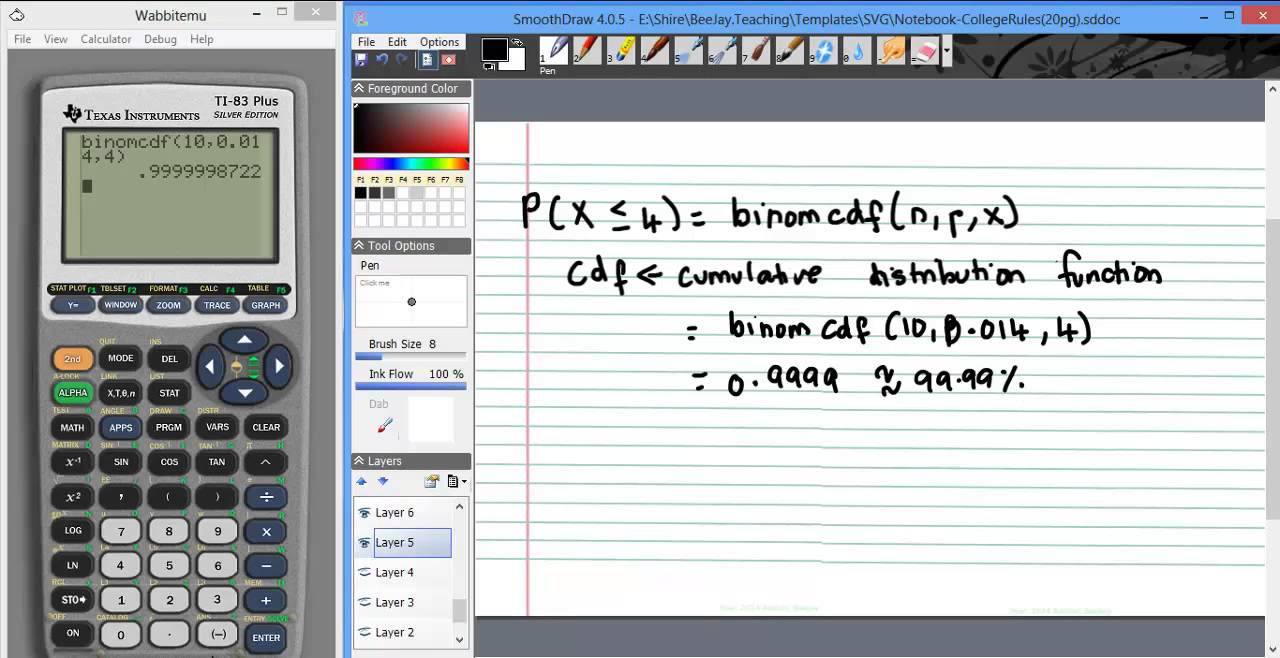 Wabbitemu
File View Calculator Debug Help
TI-83 Plus
TEXAS INSTRUMENTS SILVER EDITION
binomcdf(10,0.01
4,4)
.9999998722
STAT PLOT F1 TBLSET F2 FORMAT F3 CALC F4 TABLE F5
Y= WINDOW ZOOM TRACE GRAPH
QUIT INS
2nd MODE DEL
A-LOCK LINK LIST
ALPHA X,T,θ,n STAT
TEST A ANGLE B DRAW C DISTR
MATH APPS PRGM VARS CLEAR
MATRIX D SIN⁻¹ E COS⁻¹ F TAN⁻¹ G π H
x⁻¹ SIN COS TAN ^
x² , ( ) ÷
LOG 7 8 9 ×
LN 4 5 6 −
RCL
STO➧ 1 2 3 +
OFF CATALOG ANS ENTRY SOLVE
ON 0 . (−) ENTER
SmoothDraw 4.0.5 - E:\Shire\BeeJay.Teaching\Templates\SVG\Notebook-CollegeRules(20pg).sddoc
File Edit Options
1 2 3 4 5 6 7 8 9 0 - =
Pen
Foreground Color
F1 F2 F3 F4 F5 F6 F7 F8
Tool Options
Pen
Click me
Brush Size 8
Ink Flow 100 %
Dab
Layers
Layer 6
Layer 5
Layer 4
Layer 3
Layer 2
P(X ≤ 4) = binomcdf(n,p,x)
cdf ← cumulative distribution function
= binomcdf(10,0.014,4)
= 0.9999 ≈ 99.99%